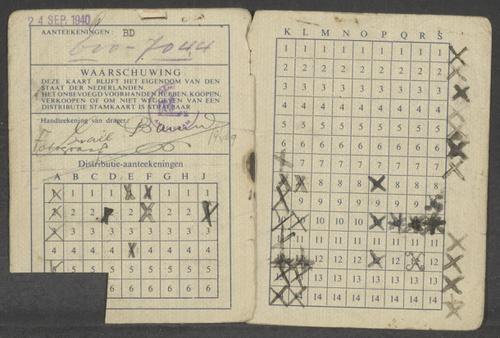 24 SEP. 1940
AANTEEKENINGEN: BD
600-7044
WAARSCHUWING
DEZE KAART BLIJFT HET EIGENDOM VAN DEN
STAAT DER NEDERLANDEN.
HET ONBEVOEGD VOORHANDEN HEBBEN, KOOPEN,
VERKOOPEN OF OM NIET WEGGEVEN VAN EEN
DISTRIBUTIE STAMKAART IS STRAFBAAR
Handteekening van drager:
Distributie-aanteekeningen
A B C D E F G H J
1 1 1 1 1 1 1 1 1
2 2 2 2 2 2 2 2
3 3 3 3 3 3 3 3 3
4 4 4 4 4 4 4 4
5 5 5 5 5 5 5 5
6 6 6 6 6 6
K L M N O P Q R S
1 1 1 1 1 1 1 1 1
2 2 2 2 2 2 2 2 2
3 3 3 3 3 3 3 3 3
4 4 4 4 4 4 4 4 4
5 5 5 5 5 5 5 5 5
6 6 6 6 6 6 6 6 6
7 7 7 7 7 7 7 7 7
8 8 8 8 8 8 8
9 9 9 9 9 9 9 9
10 10 10 10
11 11 11 11 11 11 11 11
12 12 12 12 12 12
13 13 13 13 13 13 13 13
14 14 14 14 14 14 14 14